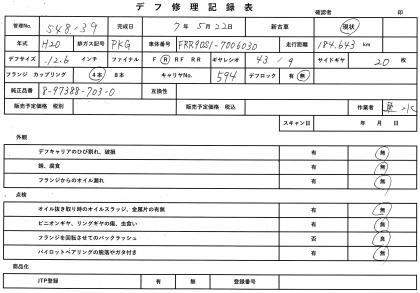 デフ修理記録表
確認者 印
管理No. 548-39 完成日 7年 5月 22日 新古車 現状
年式 H20 排ガス記号 PKG 車体番号 FRR90S1-7006030 走行距離 184.643 km
デフサイズ 12.6 インチ ファイナル F R RF RR ギヤレシオ 43/9 サイドギヤ 20 枚
フランジ カップリング 4本 8本 キャリヤNo. 594 デフロック 有 無
純正品番 8-97388-703-0 互換性
販売予定価格 税別 販売予定価格 税込 作業者
スキャン日 年 月 日
外観
デフキャリアのひび割れ、破損 有 無
錆、腐食 有 無
フランジからのオイル漏れ 有 無
点検
オイル抜き取り時のオイルスラッジ、金属片の有無 有 無
ピニオンギヤ、リングギヤの傷、虫食い 有 無
フランジを回転させてのバックラッシュ 否 良
パイロットベアリングの脱落やガタ付き 有 無
商品化
JTP登録 有 無 登録番号